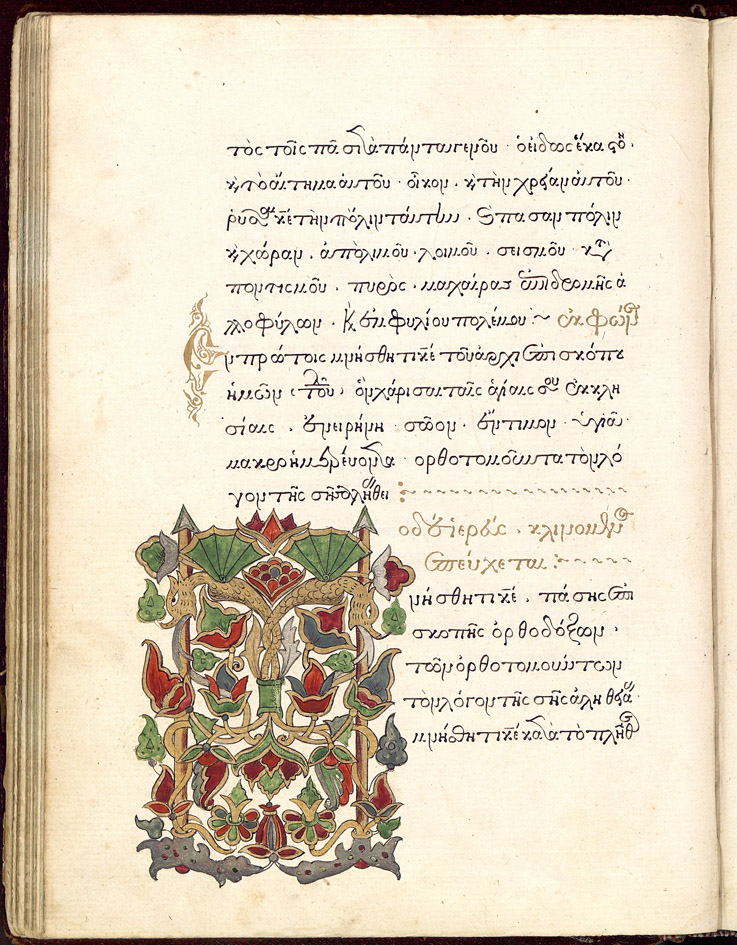 τὸς τοῖς πᾶσι τὰ πάντα γενοῦ · ὁ εἰδὼς ἕκαστον ·
κ̀ τὸ αἴτημα αὐτοῦ · οἶκον · κ̀ τὴν χρείαν αὐτοῦ ·
ῥύσαι κ̅ε τὴν πόλιν ταύτην · κ̀ πᾶσαν πόλιν
κ̀ χώραν · ἀπὸ λιμοῦ · λοιμοῦ · σεισμοῦ · κατα
ποντισμοῦ · πυρὸς · μαχαίρας ἐπιδρομῆς ἀ
λλοφύλων · κ̀ ἐμφυλίου πολέμου :~ ἐκφών
Ἐν πρώτοις μνήσθητι κ̅ε τοῦ ἀρχιεπισκόπου
ἡμῶν (τοῦ δ̅) ὃν χάρισαι ταῖς ἁγίαις σου ἐκκλη
σίαις · ἐν εἰρήνη · σῶον · ἔντιμον · ὑγιᾶ ·
μακροημερεύοντα · ὀρθοτομοῦντα τὸν λό
γον τῆς σῆς ἀληθεί
ὁ δὲ ἱερεὺς · κλινόμενος
ἐπεύχεται :
μνήσθητι κ̅ε · πάσης ἐπι
σκοπῆς ὀρθοδόξων ·
τῶν ὀρθοτομούντων
τὸν λόγον τῆς σῆς ἀληθείας
μνήσθητι κ̅ε κατὰ τὸ πλῆθος